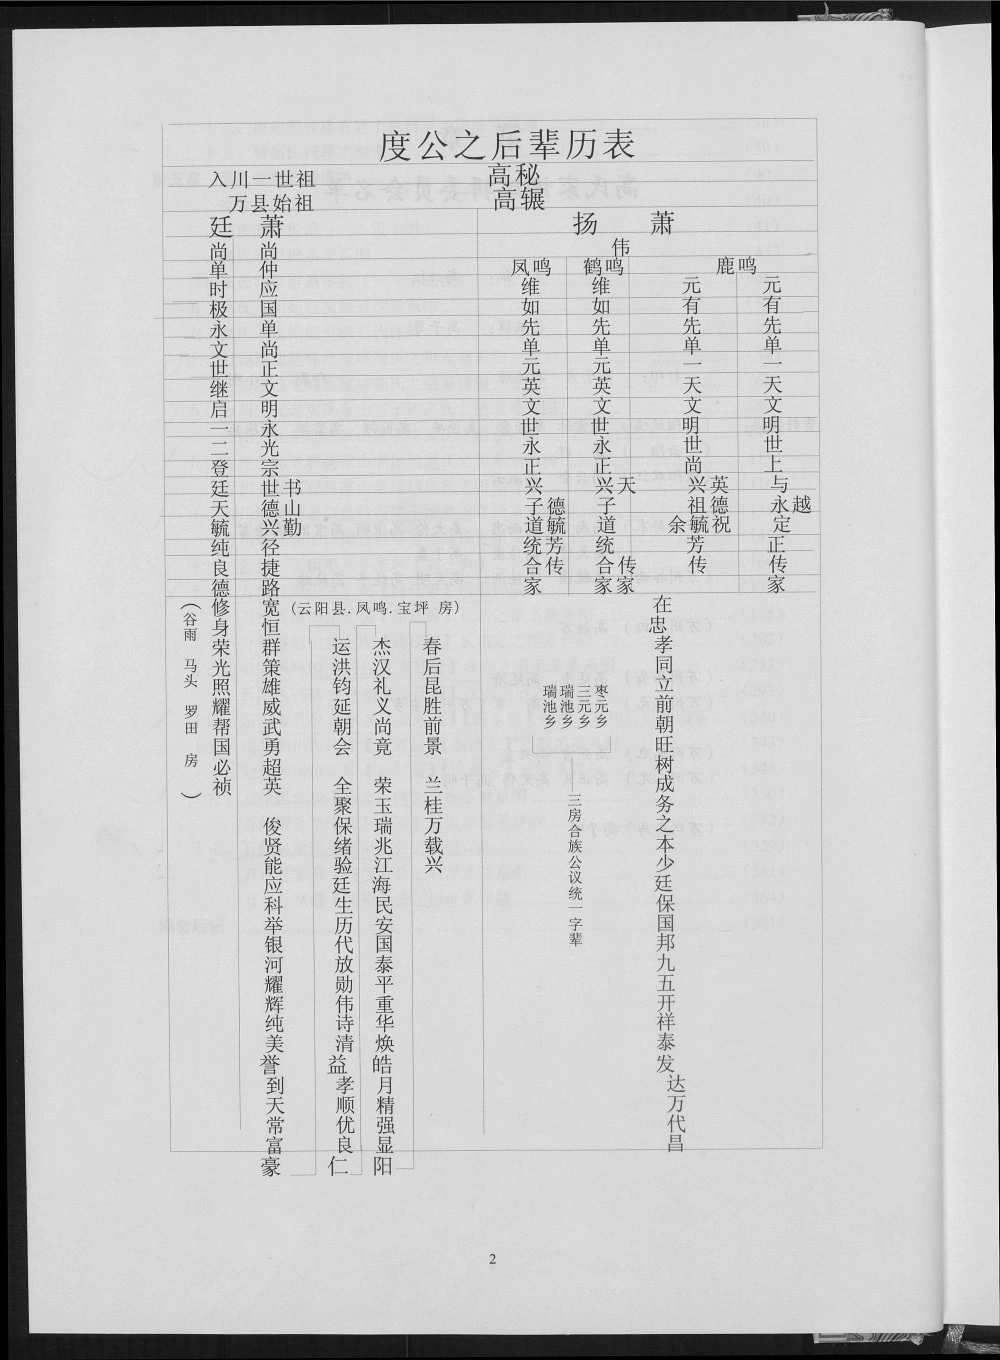 度公之后辈历表
入川一世祖
高秘
万县始祖
高辗
廷
萧
扬
萧
伟
凤鸣
鹤鸣
鹿鸣
尚单时极永文世继启一二登廷天毓纯良德修身荣光照耀帮国必祯
(谷雨 马头 罗田 房)
尚仲应国单尚正文明永光宗世德兴径捷路宽恒群策雄威武勇超英 俊贤能应科举银河耀辉纯美誉到天常富豪
书山勤
(云阳县.凤鸣.宝坪 房)
运洪钧延朝会 全聚保绪验廷生历代放勋伟诗清益孝顺优良仁
杰汉礼义尚竟 荣玉瑞兆江海民安国泰平重华焕皓月精强显阳
春后昆胜前景 兰桂万载兴
维如先单元英文世永正兴子道统合家
德毓芳传
维如先单元英文世永正兴子道统合家
天
传家
元有先单一天文明世尚兴祖毓芳传
英德祝
余
元有先单一天文明世上与永定正传家
越
瑞池乡
瑞池乡
三元乡
枣元乡
三房合族公议统一字辈
在忠孝同立前朝旺树成务之本少廷保国邦九五开祥泰发达万代昌
2